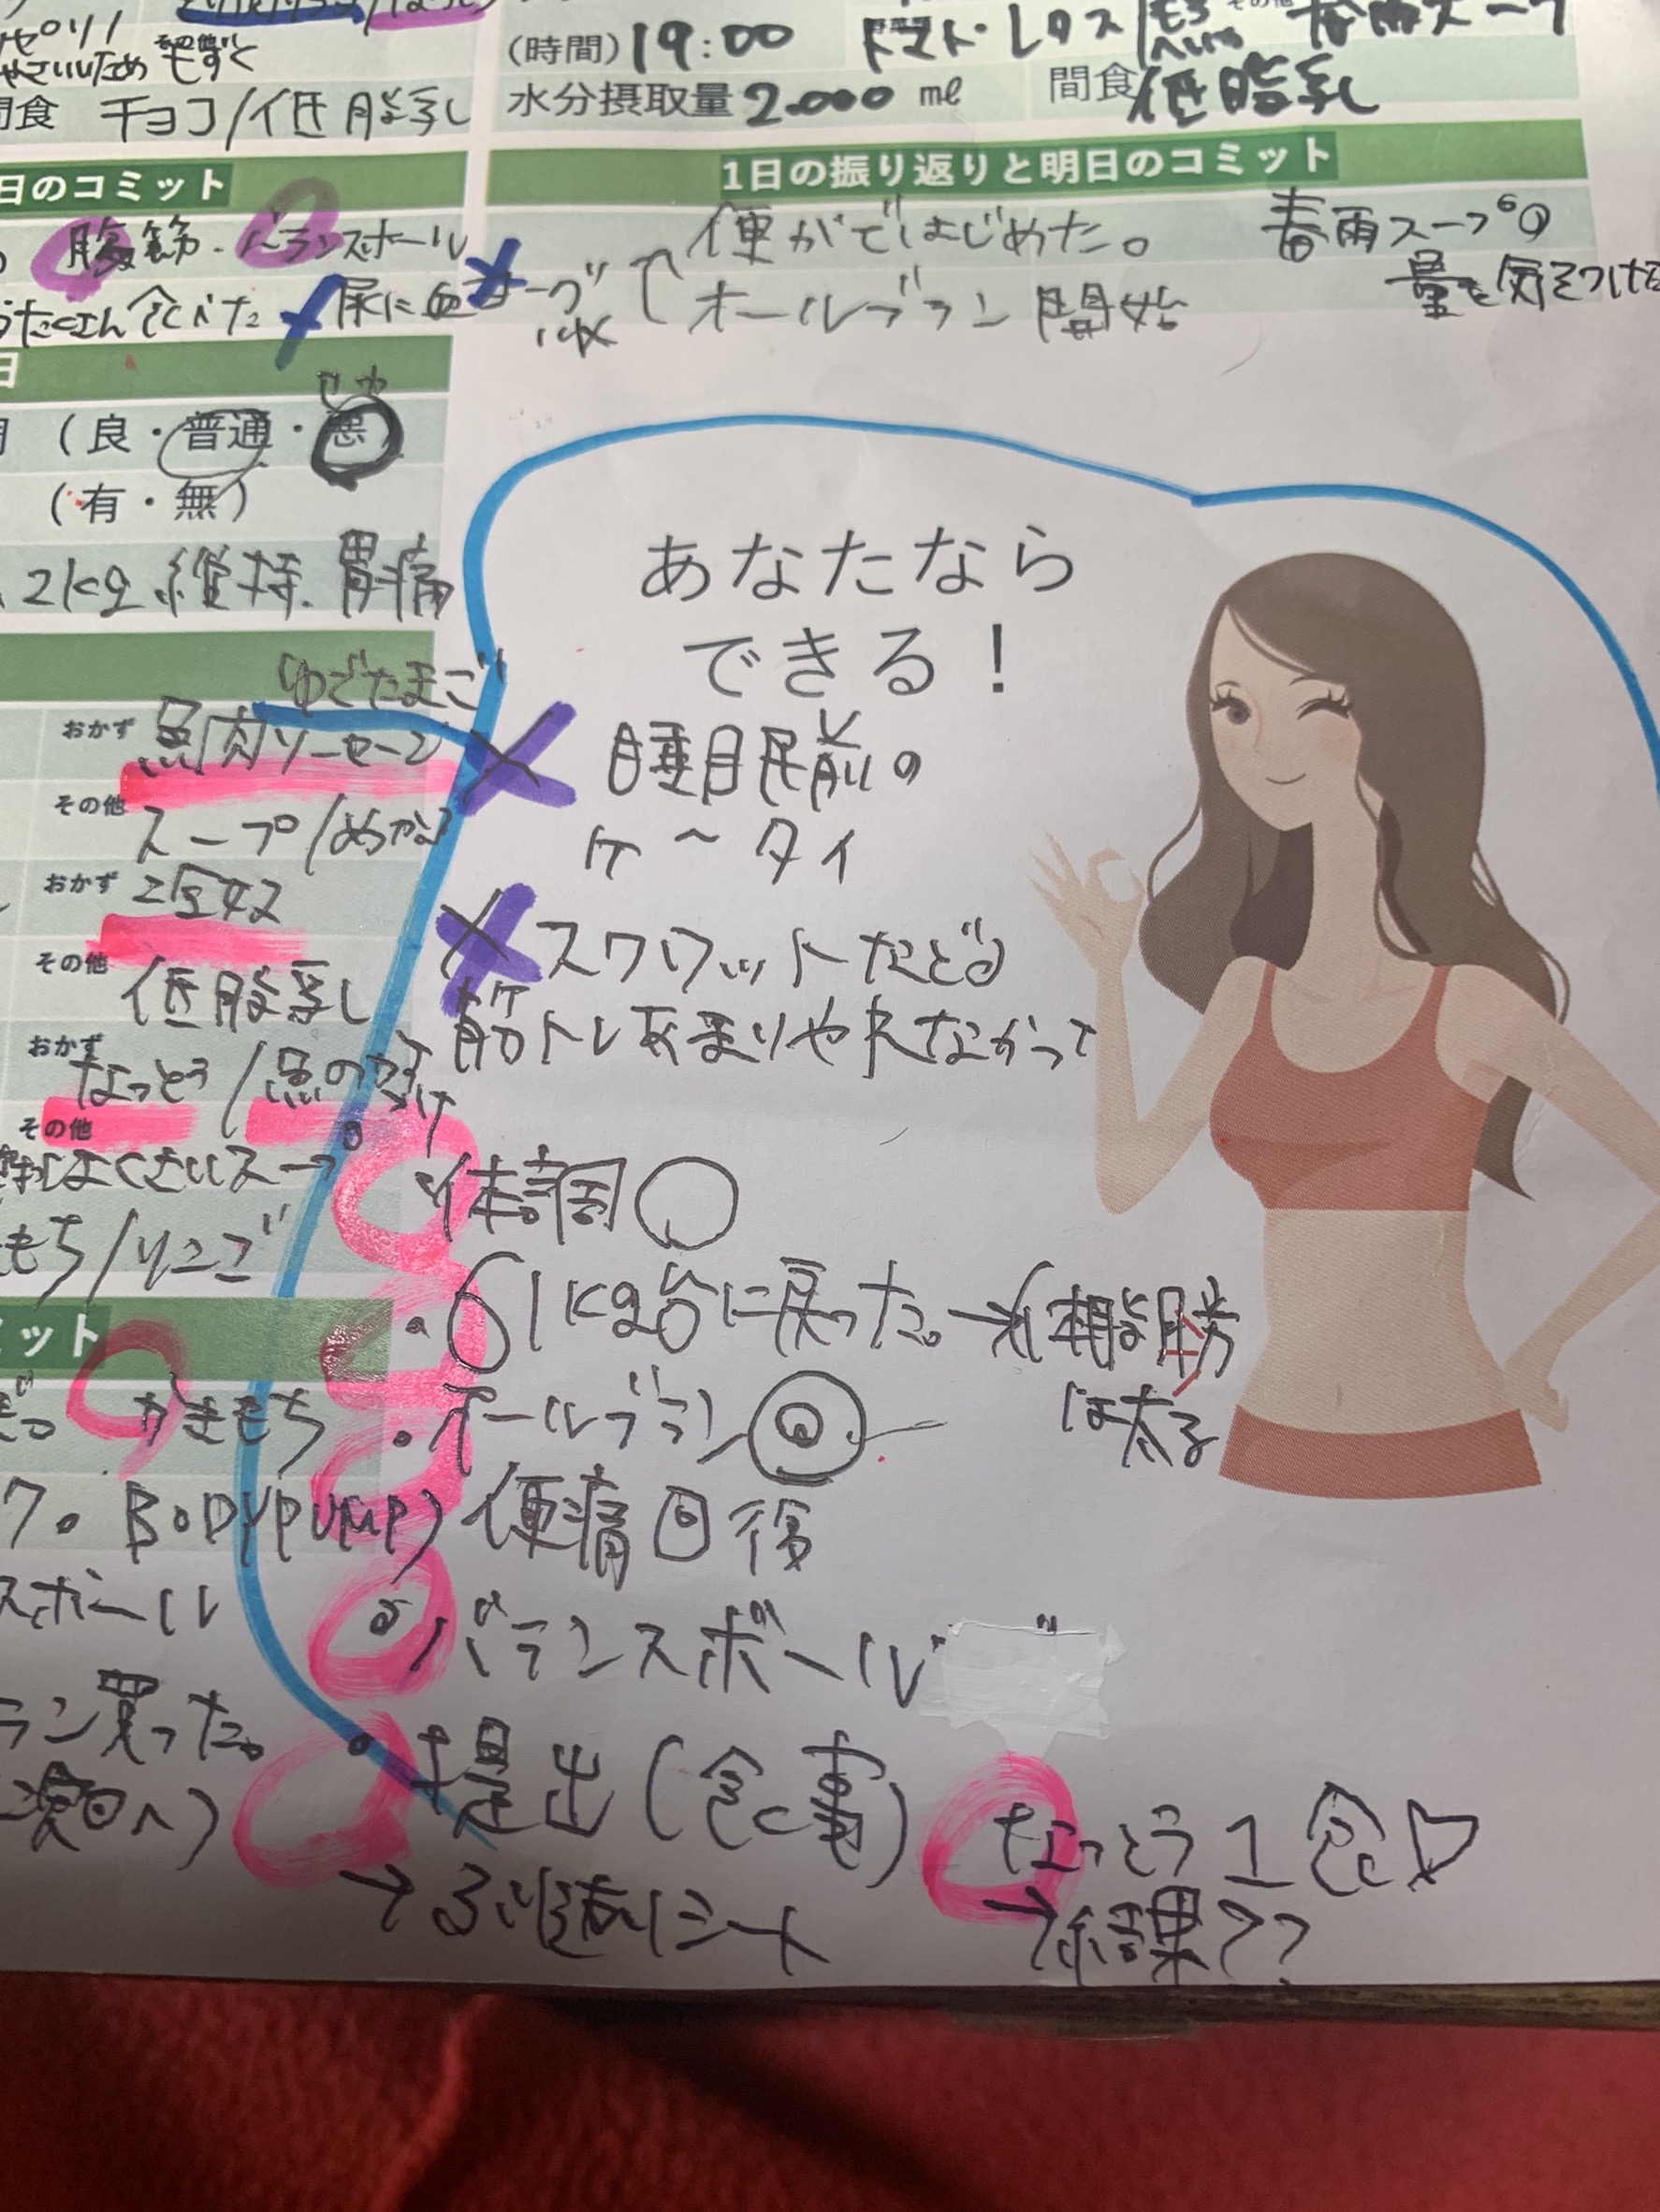 やさいいため その他 もずく
間食 チョコ/低脂乳
日のコミット
腹筋・バランスボール
たくさん食べた 尿に血
ゆでたまご
(良・普通・悪)
(有・無)
2kg 維持、胃痛
おかず 魚肉ソーセージ
その他 スープ/めかぶ
おかず
その他 低脂乳
おかず なっとう/魚の
その他
もち/りんご
ミット
かきもち
7。BODYPUMP)
スボール
ラン買った。
(時間)19:00
トマト・レタス その他 春雨スープ
水分摂取量 2.000 ml 間食 低脂乳
1日の振り返りと明日のコミット
便がではじめた。
オールブラン開始
春雨スープの
量を気をつけた
あなたなら
できる!
睡眠前の
ケータイ
スクワットなどの
筋トレあまりやれなかって
・体調○
・61kg台に戻った。→
は太る
・オールブラン◎
便痛回復
・バランスボール
・提出(食事)
→ふり返りシート
なっとう1食♡
→結果??